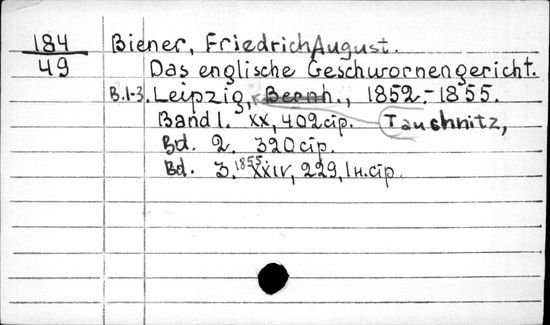 184 Biener, Friedrich August.
49 Das englische Geschwornengericht.
B.1-3. Leipzig, Bernh., 1852.-1855.
Band 1. XX, 402 cтр. Tauchnitz,
Bd. 2. 320 cтр.
Bd. 3. 1855. XXIV, 229, 1 н. cтр.